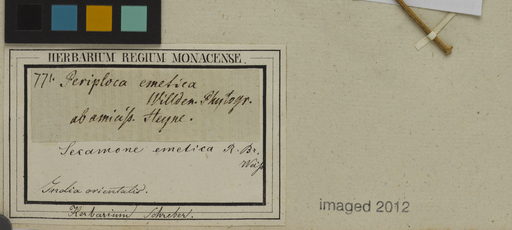 HERBARIUM REGIUM MONACENSE.
771. Periploca emetica
Willden. Phytogr.
ab amiciss. Heyne.
Secamone emetica R. Br.
India orientalis.
Herbarium Schreber.
imaged 2012